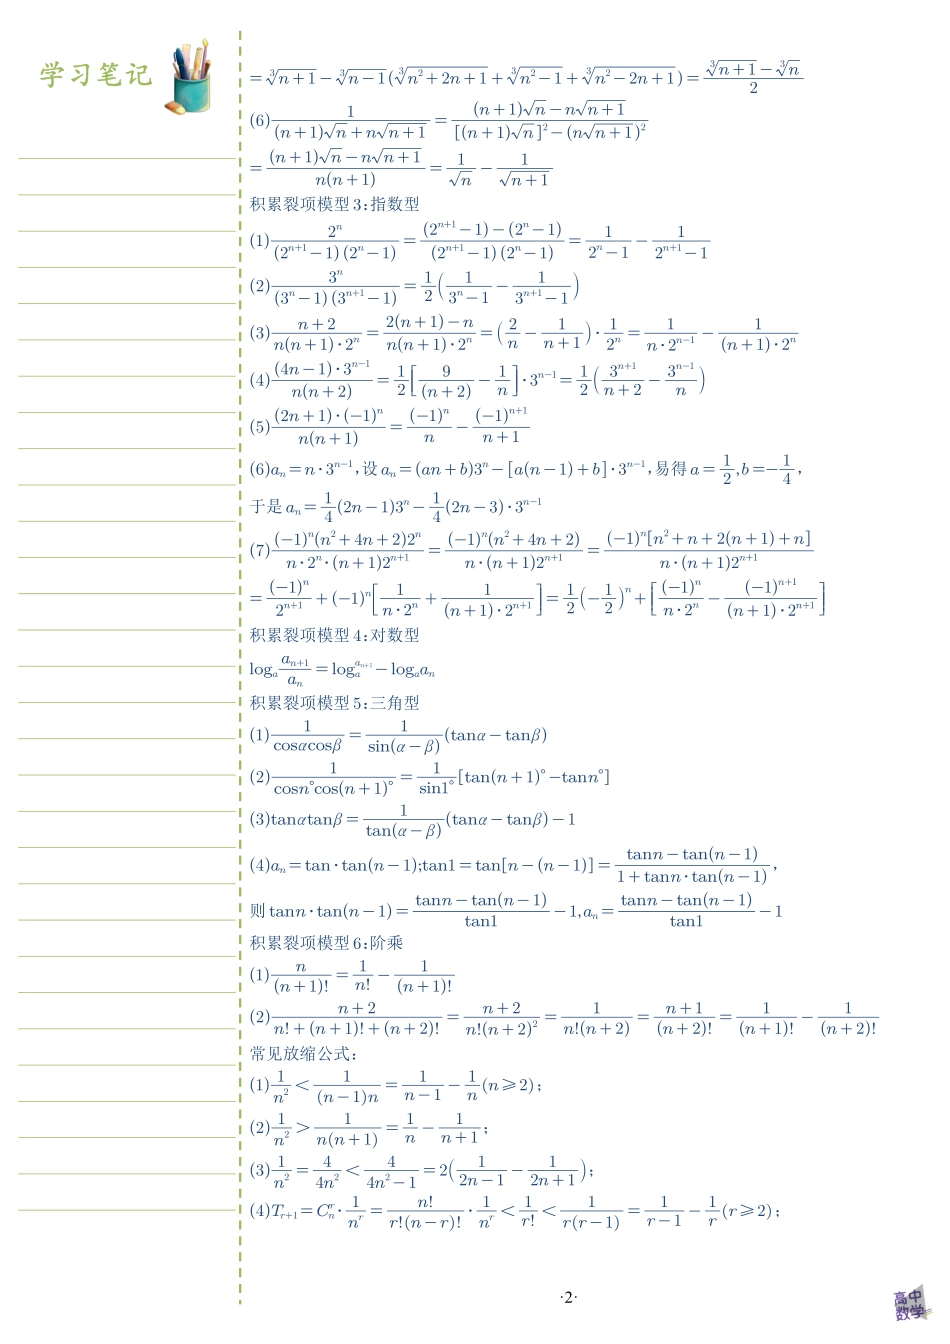 学习笔记
=∛(n+1)-∛(n-1)(∛(n²+2n+1)+∛(n²-1)+∛(n²-2n+1))=(∛(n+1)-∛n)/2
(6)1/((n+1)√n+n√(n+1))=((n+1)√n-n√(n+1))/([(n+1)√n]²-(n√(n+1))²)
=((n+1)√n-n√(n+1))/(n(n+1))=1/√n-1/√(n+1)
积累裂项模型3:指数型
(1)2ⁿ/((2ⁿ⁺¹-1)(2ⁿ-1))=((2ⁿ⁺¹-1)-(2ⁿ-1))/((2ⁿ⁺¹-1)(2ⁿ-1))=1/(2ⁿ-1)-1/(2ⁿ⁺¹-1)
(2)3ⁿ/((3ⁿ-1)(3ⁿ⁺¹-1))=1/2(1/(3ⁿ-1)-1/(3ⁿ⁺¹-1))
(3)(n+2)/(n(n+1)·2ⁿ)=(2(n+1)-n)/(n(n+1)·2ⁿ)=(2/n-1/(n+1))·1/2ⁿ=1/(n·2ⁿ⁻¹)-1/((n+1)·2ⁿ)
(4)((4n-1)·3ⁿ⁻¹)/(n(n+2))=1/2[9/(n+2)-1/n]·3ⁿ⁻¹=1/2(3ⁿ⁺¹/(n+2)-3ⁿ⁻¹/n)
(5)((2n+1)·(-1)ⁿ)/(n(n+1))=(-1)ⁿ/n-(-1)ⁿ⁺¹/(n+1)
(6)aₙ=n·3ⁿ⁻¹,设aₙ=(an+b)3ⁿ-[a(n-1)+b]·3ⁿ⁻¹,易得a=1/2,b=-1/4,
于是aₙ=1/4(2n-1)3ⁿ-1/4(2n-3)·3ⁿ⁻¹
(7)((-1)ⁿ(n²+4n+2)2ⁿ)/(n·2ⁿ·(n+1)2ⁿ⁺¹)=((-1)ⁿ(n²+4n+2))/(n·(n+1)2ⁿ⁺¹)=((-1)ⁿ[n²+n+2(n+1)+n])/(n·(n+1)2ⁿ⁺¹)
=(-1)ⁿ/2ⁿ⁺¹+(-1)ⁿ[1/(n·2ⁿ)+1/((n+1)·2ⁿ⁺¹)]=1/2(-1/2)ⁿ+[(-1)ⁿ/(n·2ⁿ)-(-1)ⁿ⁺¹/((n+1)·2ⁿ⁺¹)]
积累裂项模型4:对数型
logₐ(aₙ₊₁/aₙ)=logₐ^(aₙ₊₁)-logₐaₙ
积累裂项模型5:三角型
(1)1/(cosαcosβ)=1/sin(α-β)(tanα-tanβ)
(2)1/(cosn°cos(n+1)°)=1/sin1°[tan(n+1)°-tann°]
(3)tanαtanβ=1/tan(α-β)(tanα-tanβ)-1
(4)aₙ=tan·tan(n-1);tan1=tan[n-(n-1)]=(tann-tan(n-1))/(1+tann·tan(n-1)),
则tann·tan(n-1)=(tann-tan(n-1))/tan1-1,aₙ=(tann-tan(n-1))/tan1-1
积累裂项模型6:阶乘
(1)n/(n+1)!=1/n!-1/(n+1)!
(2)(n+2)/(n!+(n+1)!+(n+2)!)=(n+2)/(n!(n+2)²)=1/(n!(n+2))=(n+1)/(n+2)!=1/(n+1)!-1/(n+2)!
常见放缩公式:
(1)1/n²<1/((n-1)n)=1/(n-1)-1/n(n⩾2);
(2)1/n²>1/(n(n+1))=1/n-1/(n+1);
(3)1/n²=4/(4n²)<4/(4n²-1)=2(1/(2n-1)-1/(2n+1));
(4)Tᵣ₊₁=Cₙʳ·1/nʳ=n!/(r!(n-r)!)·1/nʳ<1/r!<1/(r(r-1))=1/(r-1)-1/r(r⩾2);
·2·
高中
数学